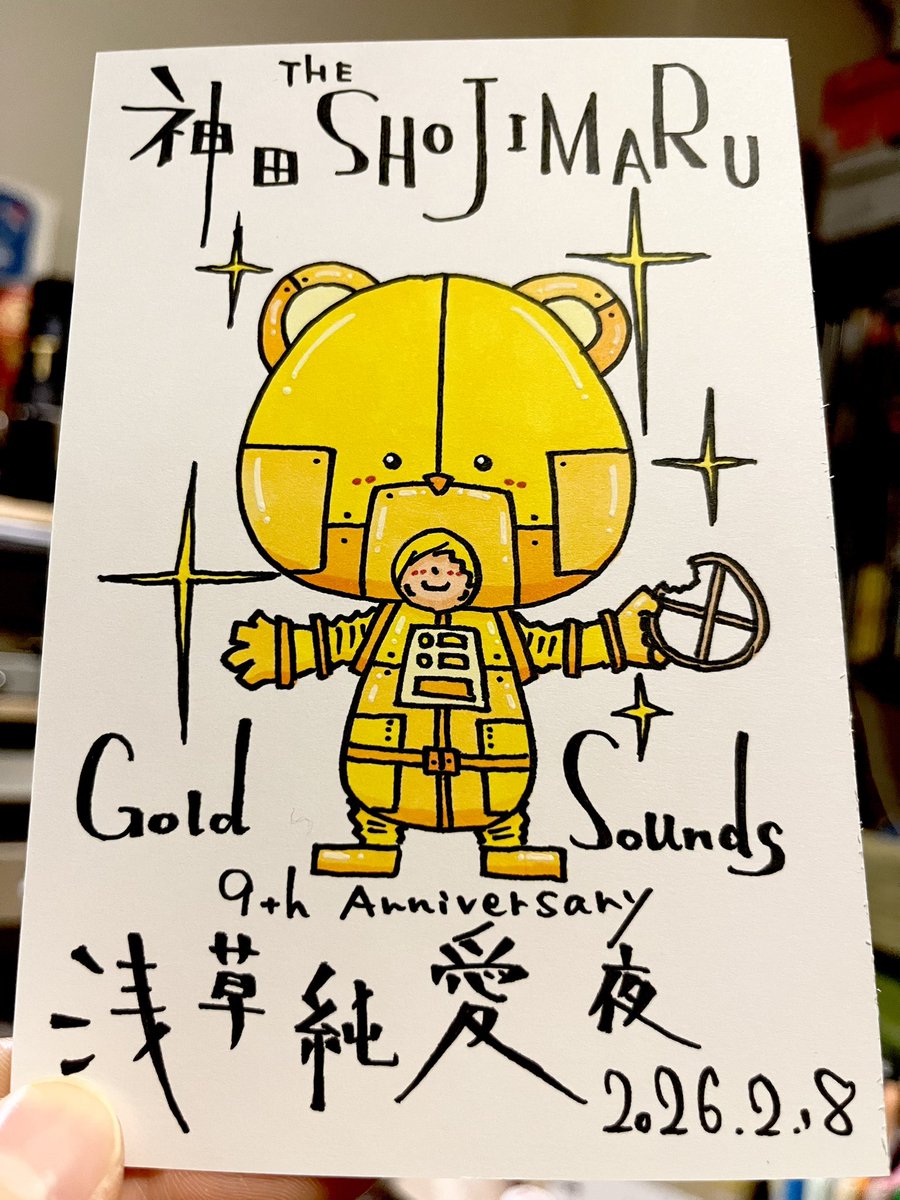 神田 THE SHOJIMARU
Gold Sounds
9th Anniversary
浅草純愛夜
2026.2.8